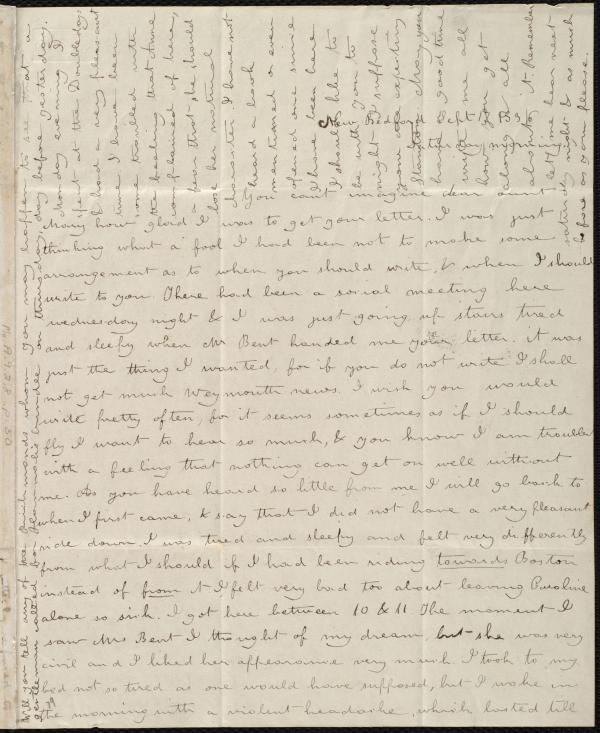 New Bedford Sept
Saturday morning
You can't imagine dear aunt
Mary how glad I was to get your letter. I was just
thinking what a fool I had been not to make some
arrangement as to when you should write, & when I should
write to you. There had been a social meeting here
wednesday night & I was just going up stairs tired
and sleepy when Mr Bent handed me your letter. it was
just the thing I wanted, for if you do not write I shall
not get much Weymouth news. I wish you would
write pretty often, for it seems sometimes as if I should
fly I want to hear so much, & you know I am troubled
with a feeling that nothing can get on well without
me. As you have heard so little from me I will go back to
when I first came, & say that I did not have a very pleasant
ride down. I was tired and sleepy and felt very differently
from what I should if I had been riding towards Boston
instead of from it I felt very bad too about leaving Caroline
alone so sick. I got here between 10 & 11 The moment I
saw Mrs Bent I thought of my dream, but she was very
civil and I liked her appearance very much. I took to my
bed not so tired as one would have supposed, but I woke in
the morning with a violent headache, which lasted till
Will you tell any of the Richmonds whom you may happen to see that a
gentleman called on thursday, day before yesterday.
Monday evening I
spent at the Doubledays
& had a very pleasant
time I have been
some troubled with
the feeling that Anne
complained of here,
a fear that she should
lose her natural
character I have not
heard a book
mentioned or even
opened one since
I have been here
I should like to
be with you to
night I suppose
you are expecting
Stanton chray you
have a good time
write me all
how you get
along & all
about it. Remember
let me hear next
saturday night & as much
before as you please.